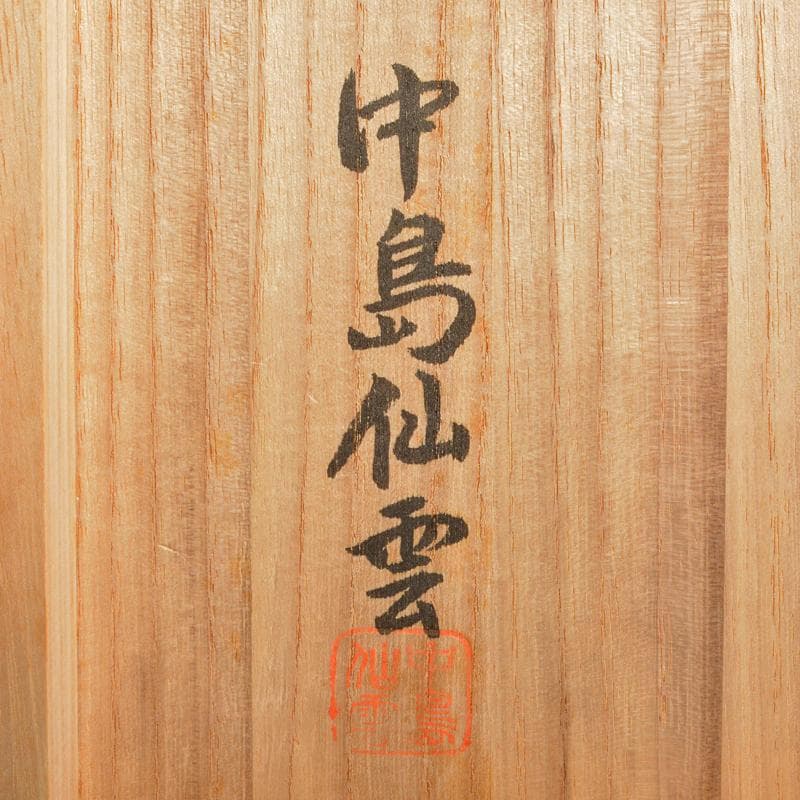 中島仙雲
中島
仙雲